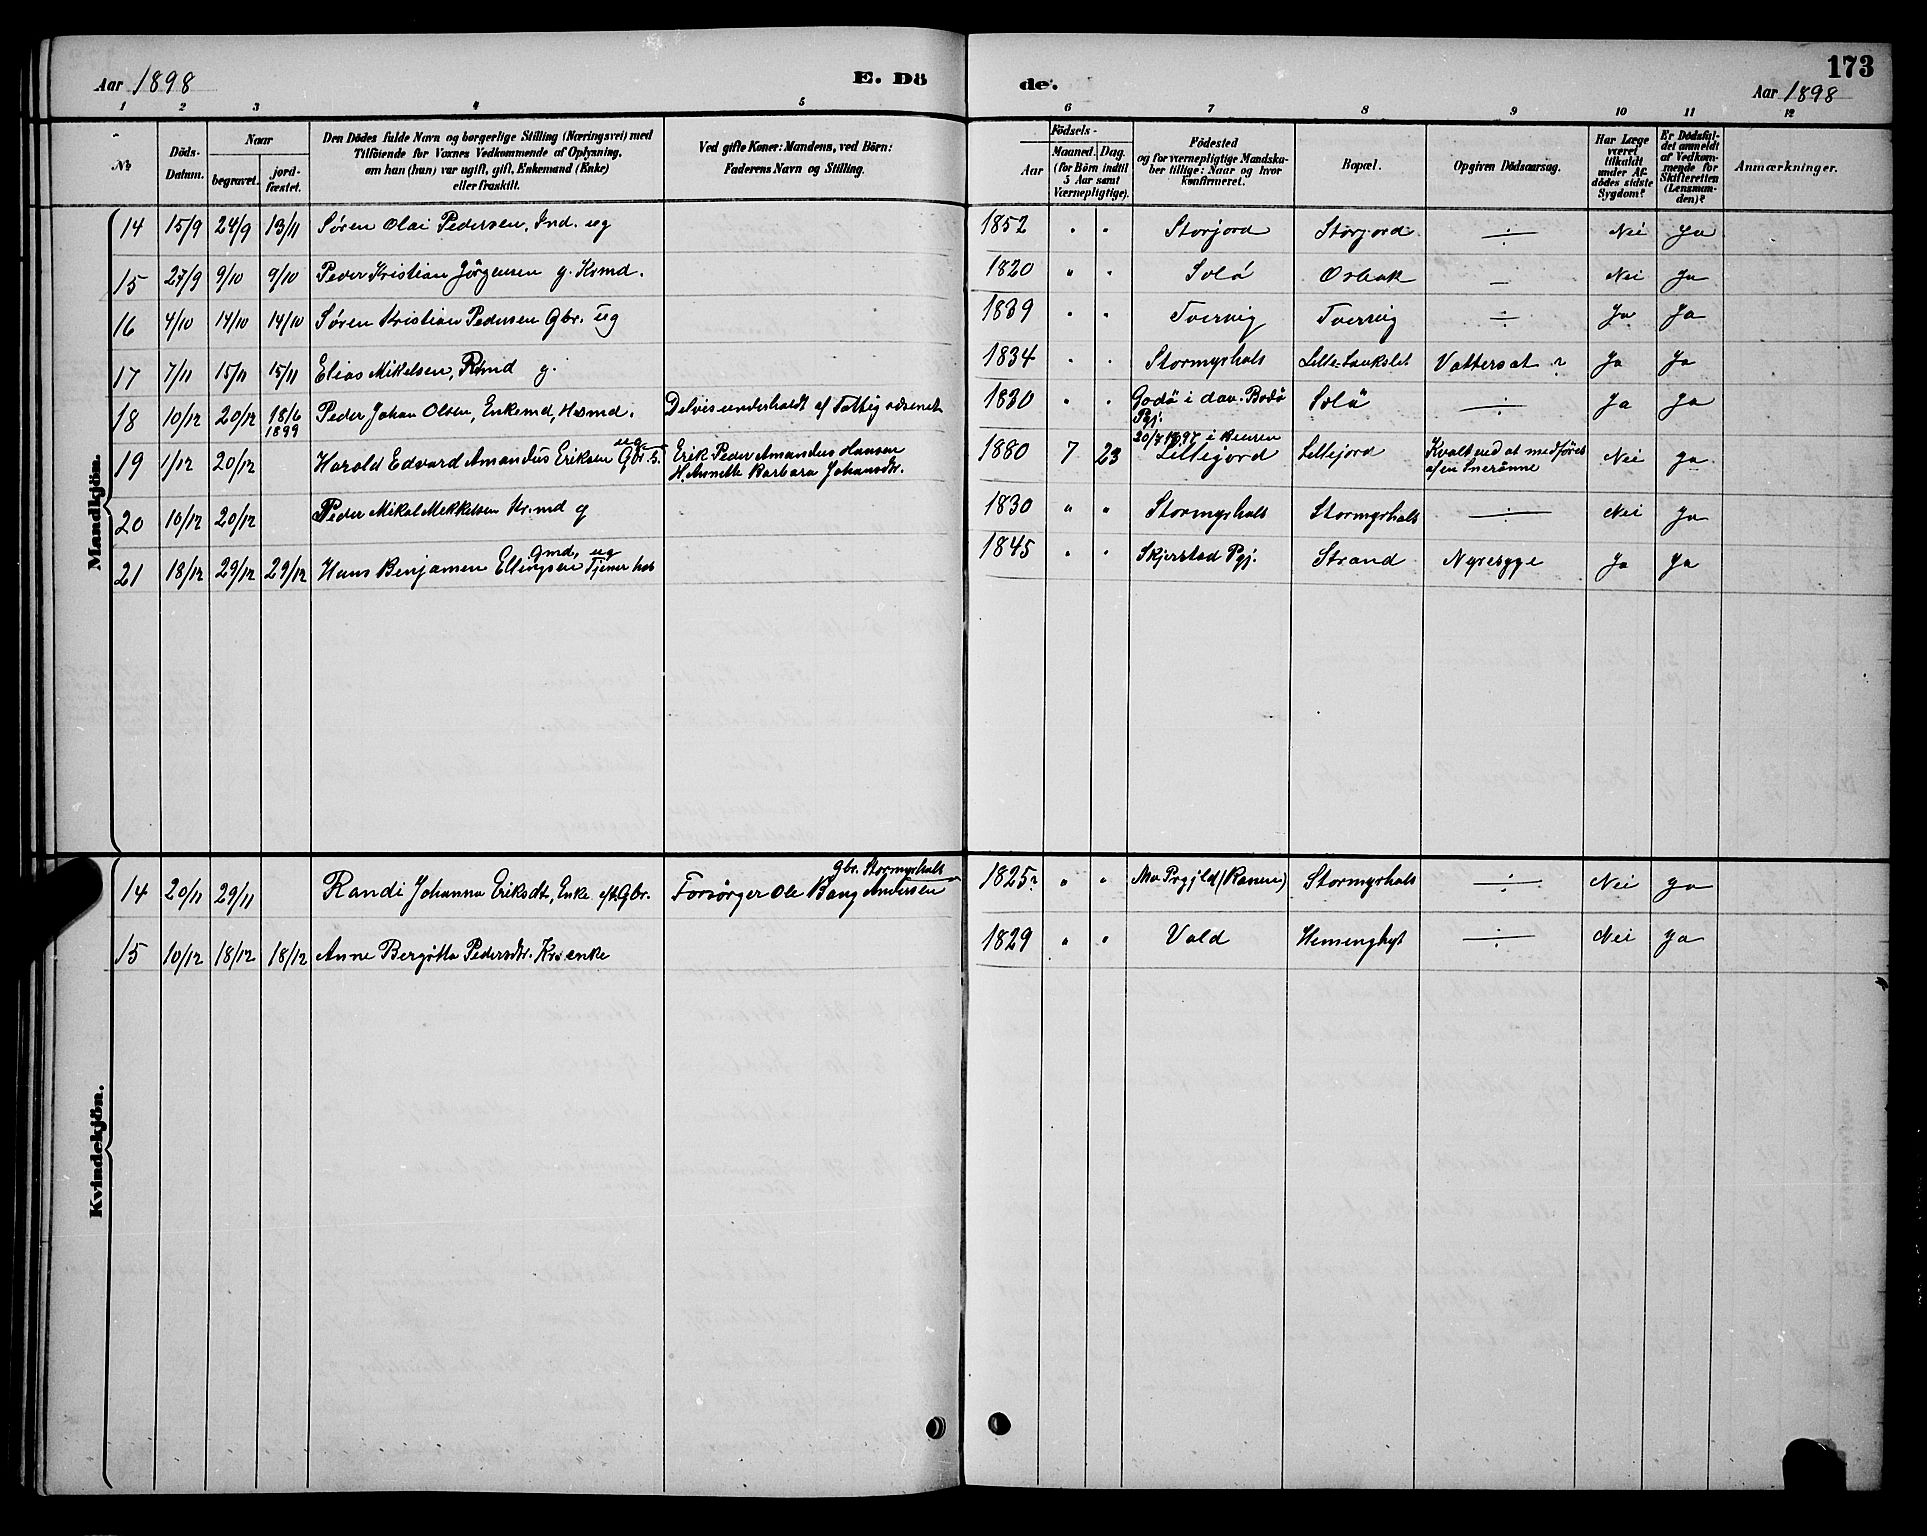 Aar 1898 E. Dö
de. Aar 1898 173
1 2 3 4 5 6 7 8 9 10 11 12
№
Döds-Datum.
Naar
begravet.
jord-fæstet.
Den Dödes fulde Navn og borgerlige Stilling (Næringsvei) med
Tilföiende for Voxnes Vedkommende af Oplysning,
om han (hun) var ugift, gift, Enkemand (Enke)
eller fraskilt.
Ved gifte Koner: Mandens, ved Börn:
Faderens Navn og Stilling.
Födsels-
Aar
Maaned. Dag.
(for Börn indtil
5 Aar samt
Værnepligtige).
Födested
og for værnepligtige Mandska-
ber tillige: Naar og hvor
konfirmeret.
Bopæl.
Opgiven Dödsaarsag.
Har Læge
været
tilkaldt
under Af-
dödes sidste
Sygdom?
Er Dödsfal-
det anmeldt
af Vedkom-
mende for
Skifteretten
(Lensman-
den)?
Anmærkninger.
Mandkjön.
14 15/9 24/9 13/11 Søren Olai Pedersen, Ind. ug 1852 " " Storjord Storjord ÷ Nei Ja
15 27/9 9/10 9/10 Peder Kristian Jörgensen g. Ksmd. 1820 " " Solö Osbak – Nei Ja
16 4/10 14/10 14/10 Søren Kristian Pedersen Gbr. ug 1839 " " Tvervig Tvervig ÷ Ja Ja
17 7/11 15/11 15/11 Elias Mikelsen, g. 1834 " " Stormyrhals Lille-Laukslet Vattersot ? Ja Ja
18 10/12 20/12 18/6 1899 Peder Johan Olsen, Enkemd, Hsmd. Delvis underholdt af Fattigvæsenet 1830 " " Godö i dav. Bodö Pgj. Solö ÷ Ja Ja
19 1/12 20/12 Harold Edvard Amandus Eriksen ug Gbr. S. Erik Peder Amandus Hansen
H. Annette Barbara Johansdtr. 1880 7 23 20/7 1897 i
Lillejord Lillejord Kvalt ved at medføres
af en Snerönne Nei Ja
20 10/12 20/12 Peder Mikal Mikkelsen Ksmd g 1830 " " Stormyrhals Stormyrhals ÷ Nei Ja
21 18/12 29/12 29/12 Hans Benjamen Ellingsen Gmd, ug Tjener hos 1845 " " Skjerstad Pgj. Strand Nyresyge Ja Ja
Kvindekjön.
14 20/11 29/11 Randi Johanna Eriksdt, Enke eft. Gbr. Forsörger Ole Bang Andersen Gbr. Stormyrhals 1825? " " Mo Prgjld (Ranen) Stormyrhals ÷ Nei Ja
15 10/12 18/12 18/12 Anne Bergitta Pedersdtr. Ksenke 1829 " " Vold Hemenghyt ÷ Nei Ja